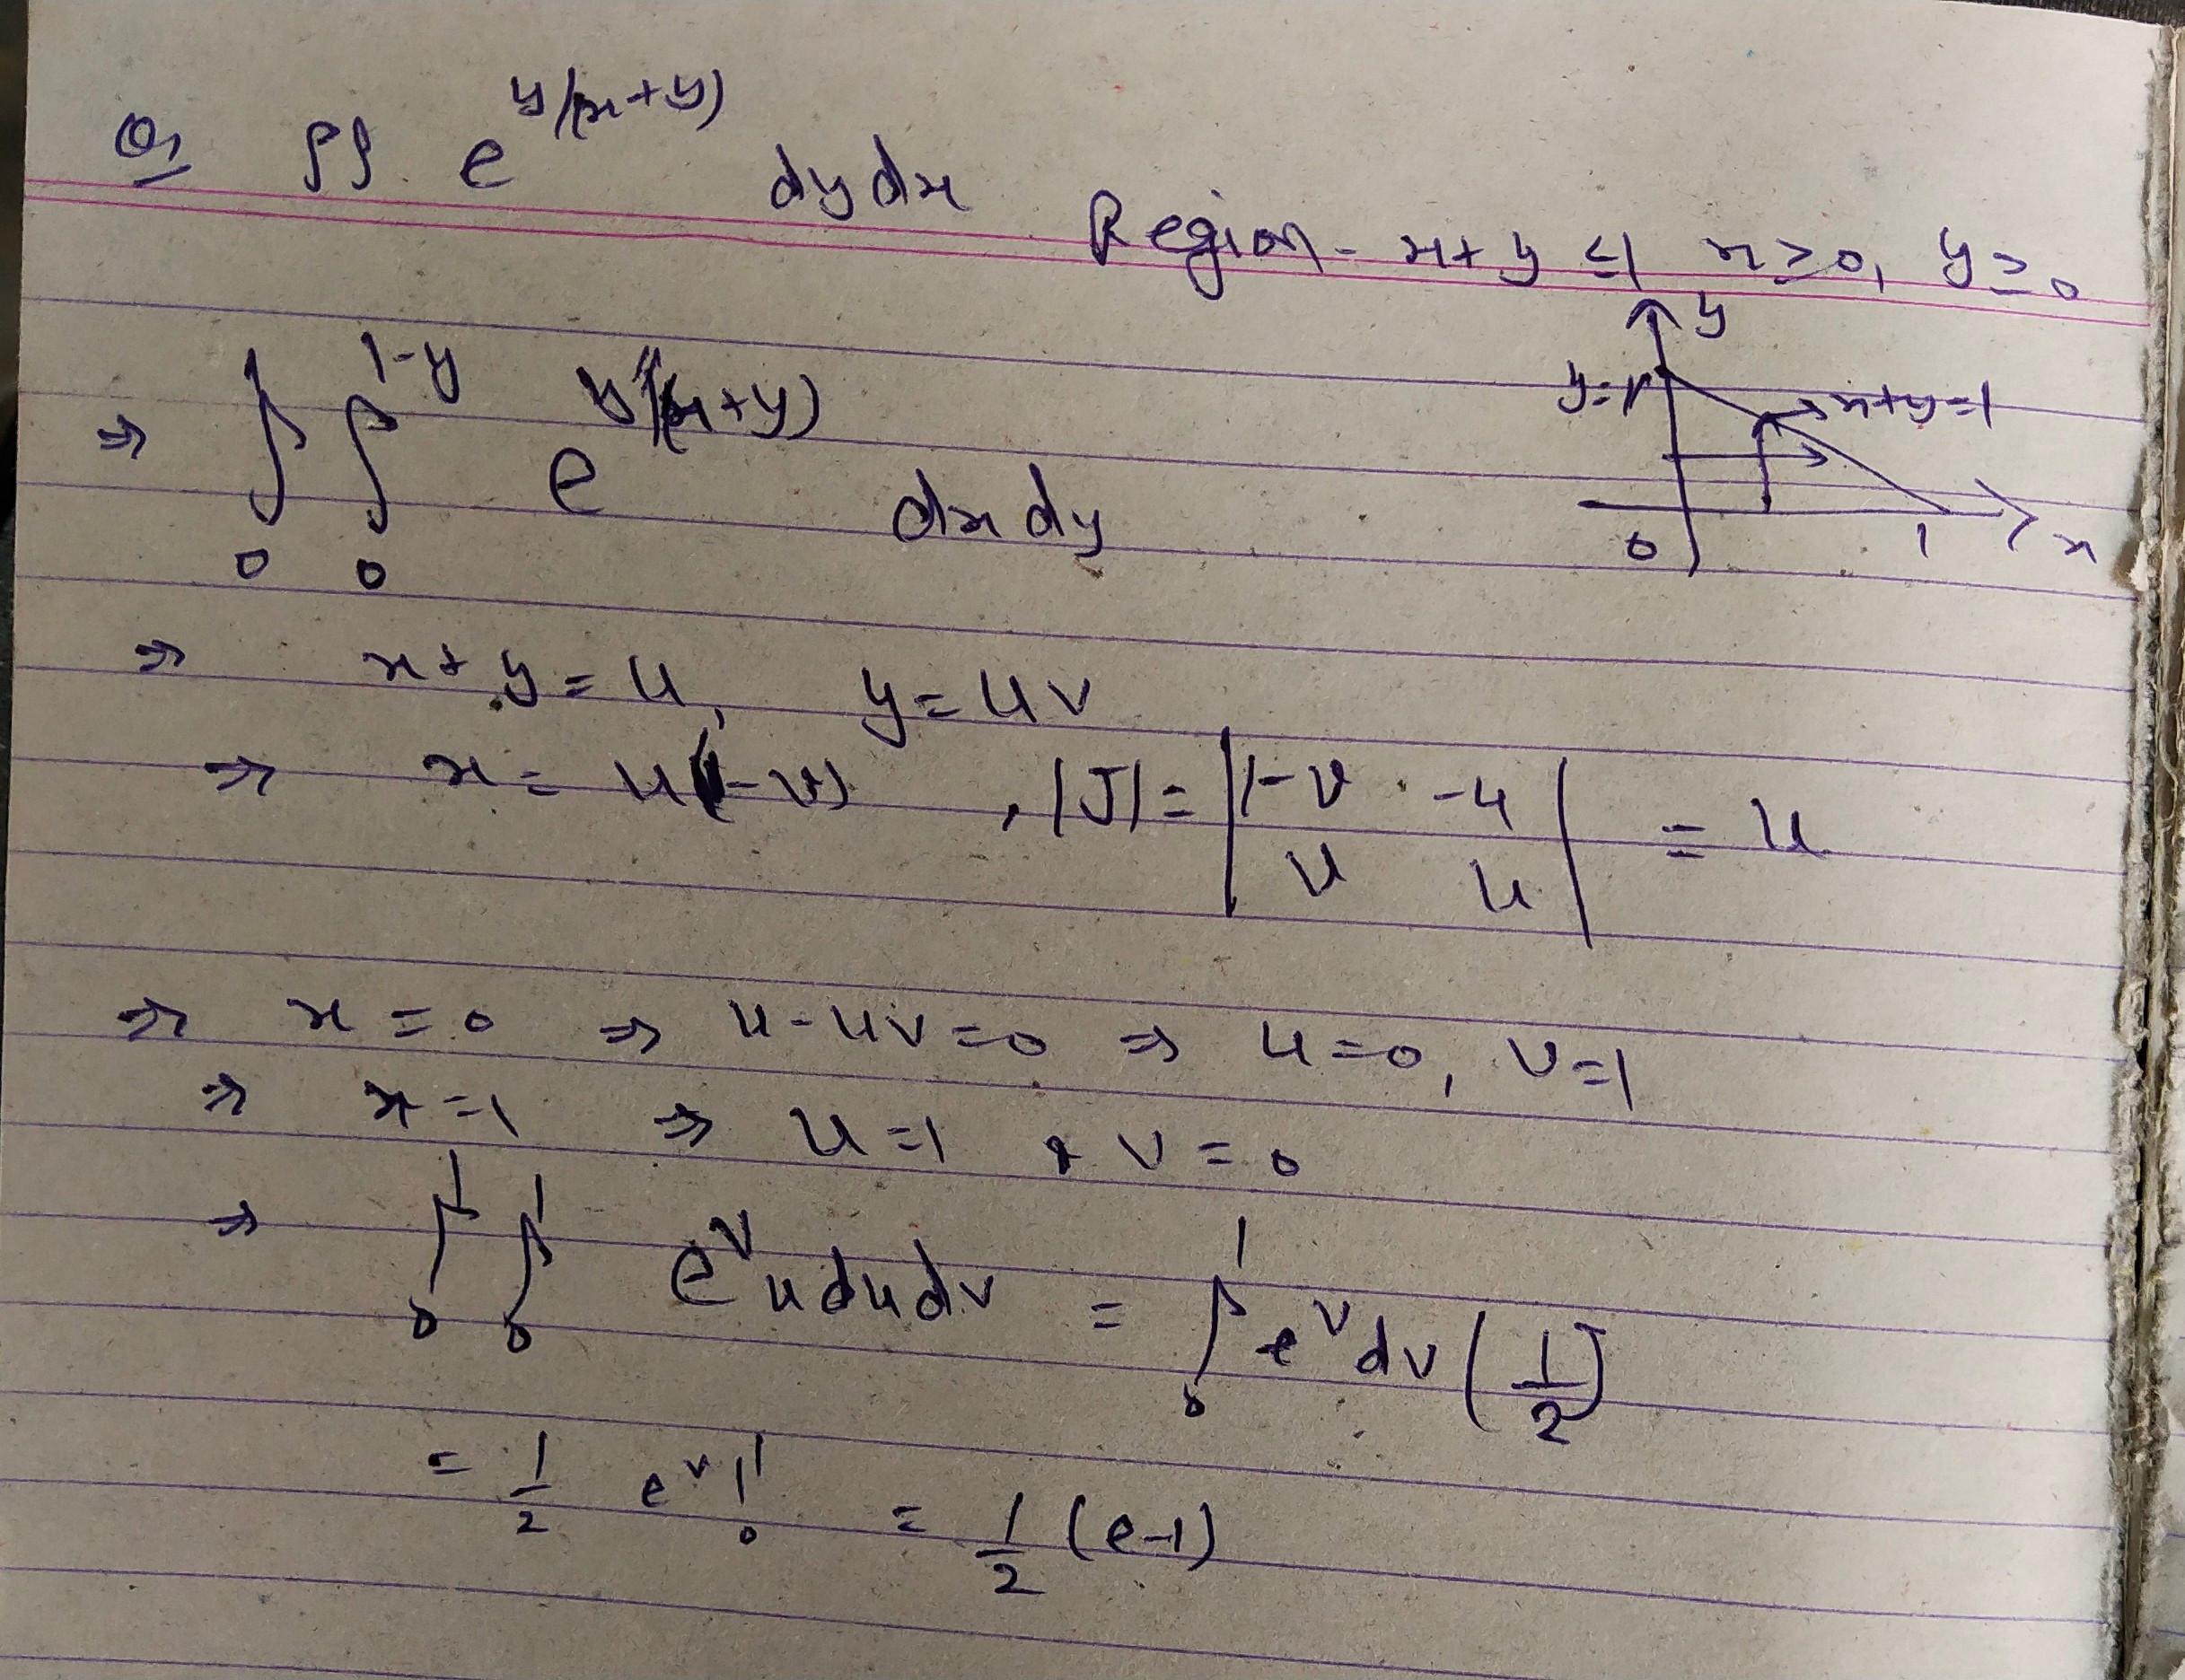 Q, ∫∫ e^{y/(x+y)} dy dx Region - x+y ≤1 x≥0, y≥0
⇒ ∫_0^1 ∫_0^{1-y} e^{y/(x+y)} dx dy
y
y=1
x+y=1
0 1 x
⇒ x+y = u, y = uv
⇒ x = u(1-v) , |J| = |1-v -u; v u| = u
⇒ x = 0 ⇒ u-uv=0 ⇒ u=0, v=1
⇒ x=1 ⇒ u=1 & v=0
⇒ ∫_0^1 ∫_0^1 e^v u du dv = ∫_0^1 e^v dv (1/2)
= 1/2 e^v |_0^1 = 1/2 (e-1)